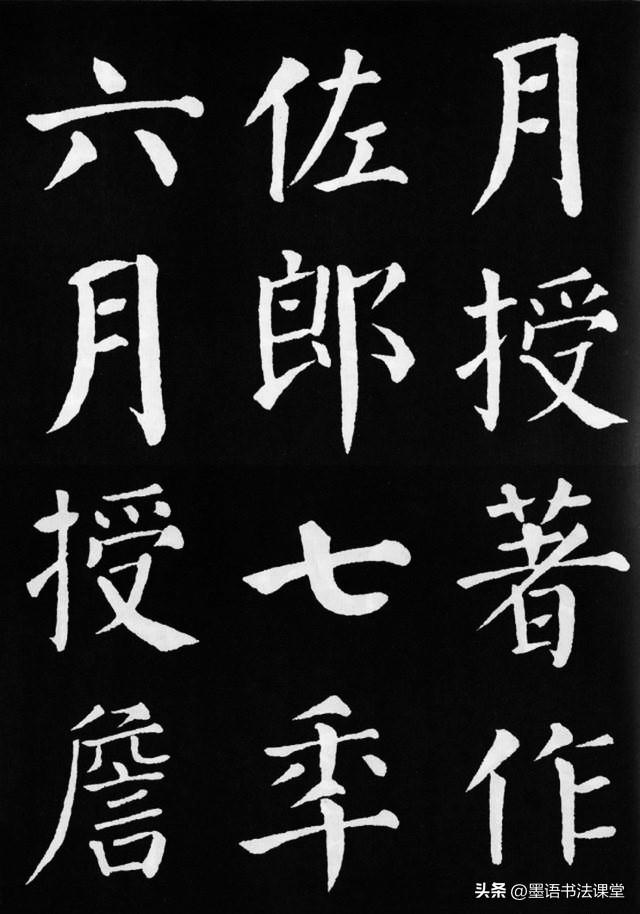 月授著作
佐郎七秊
六月授詹
头条 @墨语书法课堂